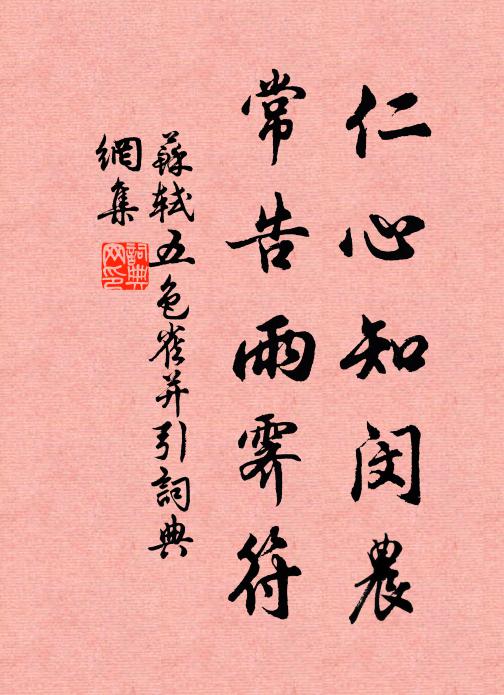 仁心知閔農
常告雨霽符
蘇軾五色雀并引詞典
網集
詞典
網印